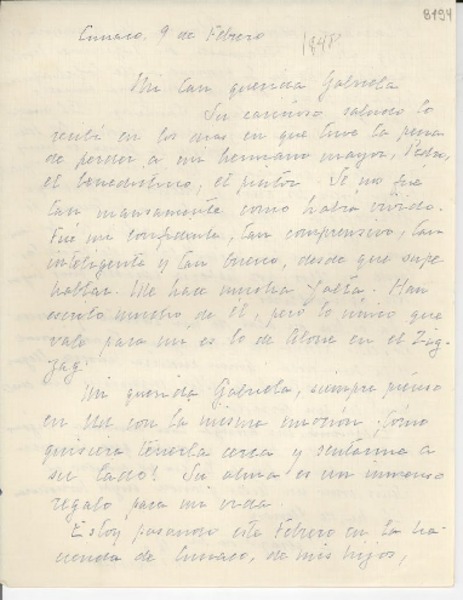 8194
Cunaco. 9 de Febrero
1948
Mi tan querida Gabriela
Su cariñoso saludo lo
recibí en los días en que tuve la pena
de perder a mi hermano mayor, Pedro,
el benedictino, el pintor. Se no fué
tan mansamente como había vivido.
Fué mi confidente, tan comprensivo, tan
inteligente y tan bueno, desde que supe
hablar. Me hace mucha falta. Han
escrito mucho de él, pero lo único que
vale para mí es lo de Alone en el Zig-
zag.
Mi querida Gabriela, siempre pienso
en Ud con la misma emoción. ¡Cómo
quisiera tenerla cerca y sentarme a
su lado! Su alma es un inmenso
regalo para mi vida.
Estoy pasando este Febrero en la ha-
cienda de Cunaco, de mis hijos,